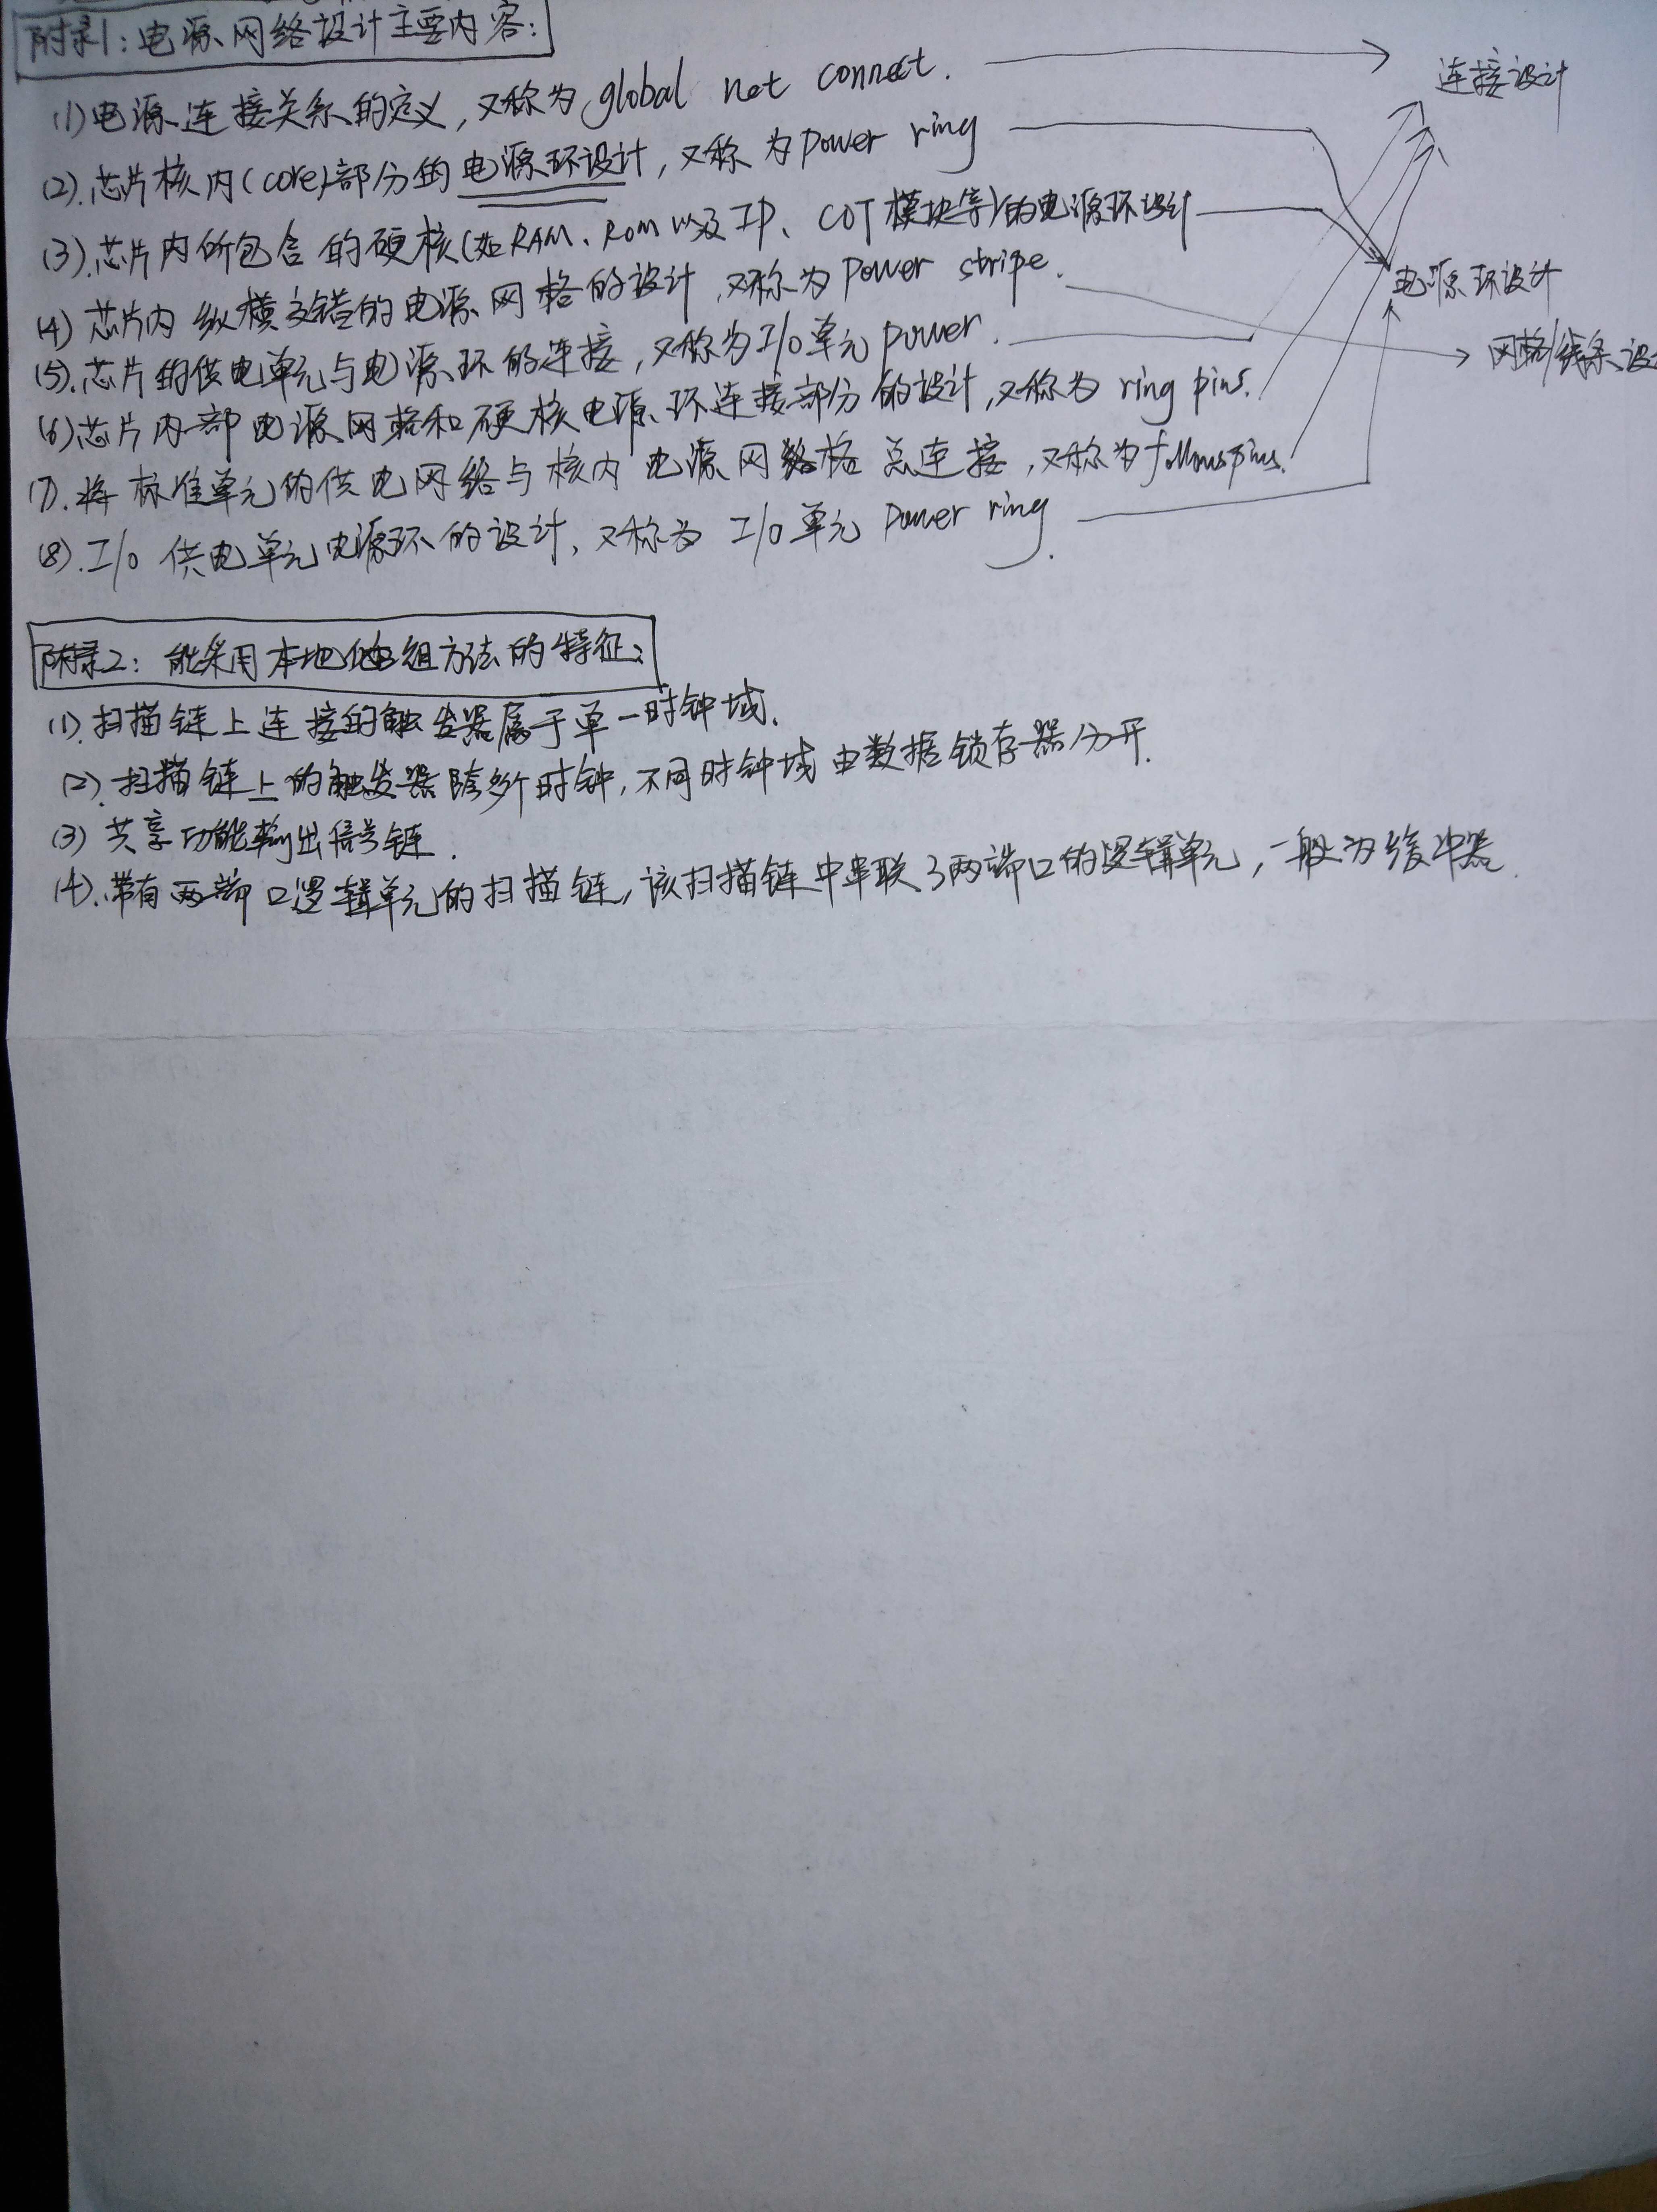 附录1:电源网络设计主要内容:
(1)电源连接关系的定义,又称为global net connect.
连接设计
(2).芯片核内(core)部分的电源环设计,又称为power ring
(3).芯片内所包含的硬核(如RAM、ROM以及IP、COT模块等)的电源环设计
电源环设计
(4)芯片内纵横交错的电源网格的设计,又称为power stripe.
网格/线条设
(5).芯片的供电单元与电源环的连接,又称为I/O单元power.
(6)芯片内部电源网格和硬核电源环连接部分的设计,又称为ring pins.
(7).将标准单元的供电网络与核内电源网格总连接,又称为followpins.
(8).I/O供电单元电源环的设计,又称为I/O单元power ring.
附录2:能采用本地化重组方法的特征:
(1).扫描链上连接的触发器属于单一时钟域.
(2).扫描链上的触发器跨多个时钟,不同时钟域由数据锁存器分开.
(3)共享功能输出信号链.
(4).带有两端口逻辑单元的扫描链,该扫描链中串联了两端口的逻辑单元,一般为缓冲器.